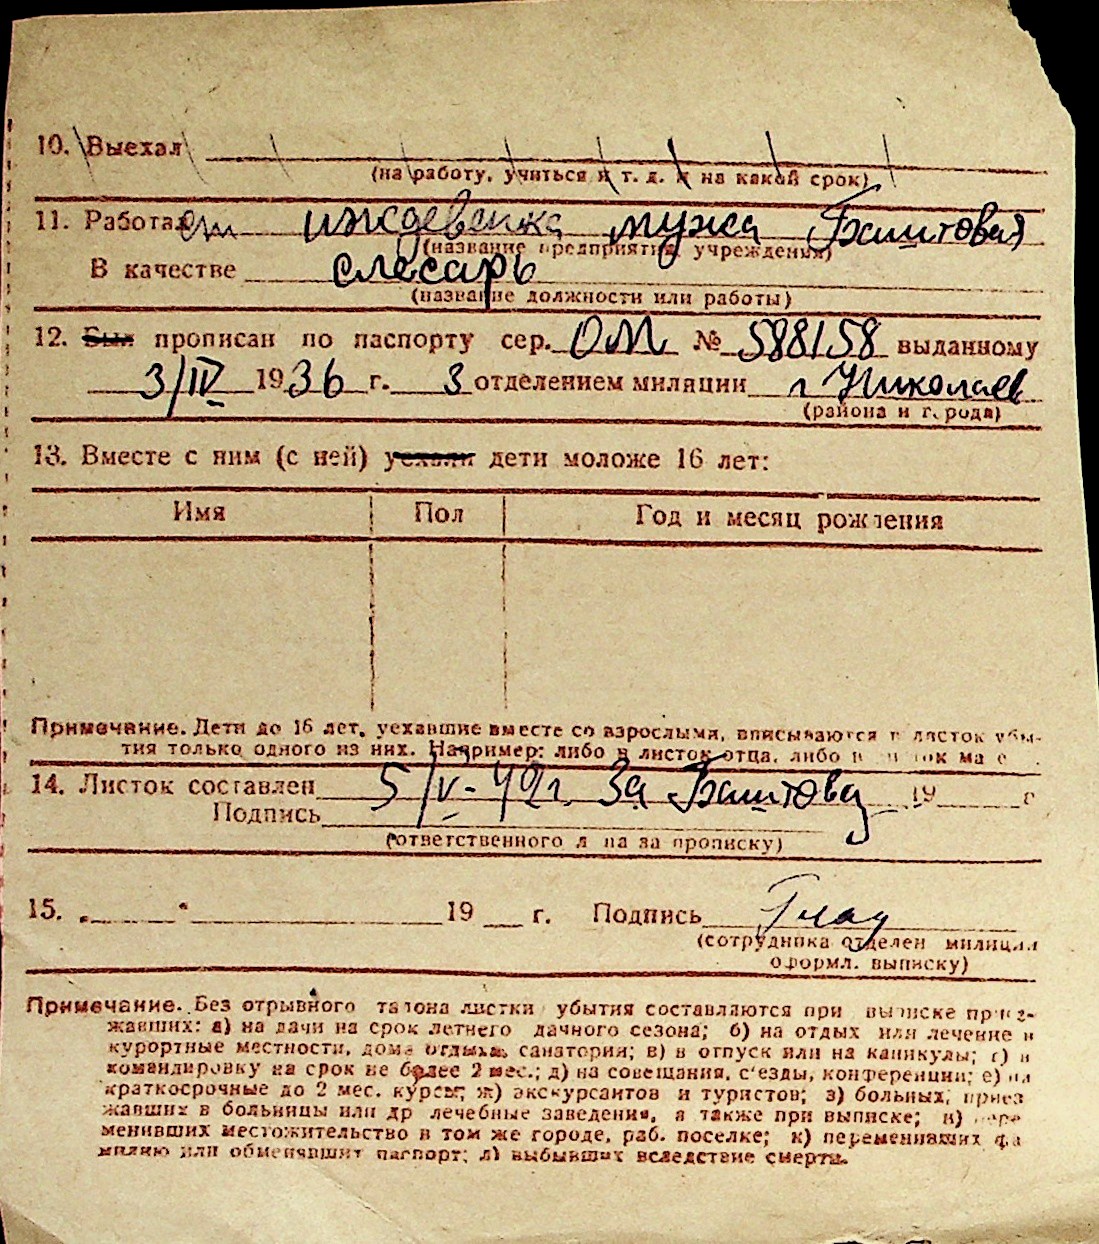 10. Выехал
(на работу, учиться и т. д. и на какой срок)
11. Работал иждевенка мужа Баштовая
(название предприятия, учреждения)
В качестве слесарь
(название должности или работы)
12. Был прописан по паспорту сер. ОМ № 588158 выданному
3/IV 1936 г. 3 отделением милиции г Николаев
(района и города)
13. Вместе с ним (с ней) уехали дети моложе 16 лет:
Имя Пол Год и месяц рождения
Примечание. Дети до 16 лет, уехавшие вместе со взрослыми, вписываются в листок убы-
тия только одного из них. Например: либо в листок отца, либо в
14. Листок составлен 5/V-42г. За Баштовая 19 г
Подпись
(ответственного лица за прописку)
15. „ " 19 г. Подпись
(сотрудника отделен милиции
оформл. выписку)
Примечание. Без отрывного талона листки убытия составляются при выписке приез-
жавших: а) на дачи на срок летнего дачного сезона; б) на отдых или лечение в
курортные местности, дома отдыха, санатории; в) в отпуск или на каникулы; г) в
командировку на срок не более 2 мес.; д) на совещания, с'езды, конференции; е) на
краткосрочные до 2 мес. курсы; ж) экскурсантов и туристов; з) больных, приез
жавших в больницы или др лечебные заведения, а также при выписке; и) пере
менивших местожительство в том же городе, раб. поселке; к) переменивших фа
милию или обменявших паспорт; л) выбывших вследствие смерти.